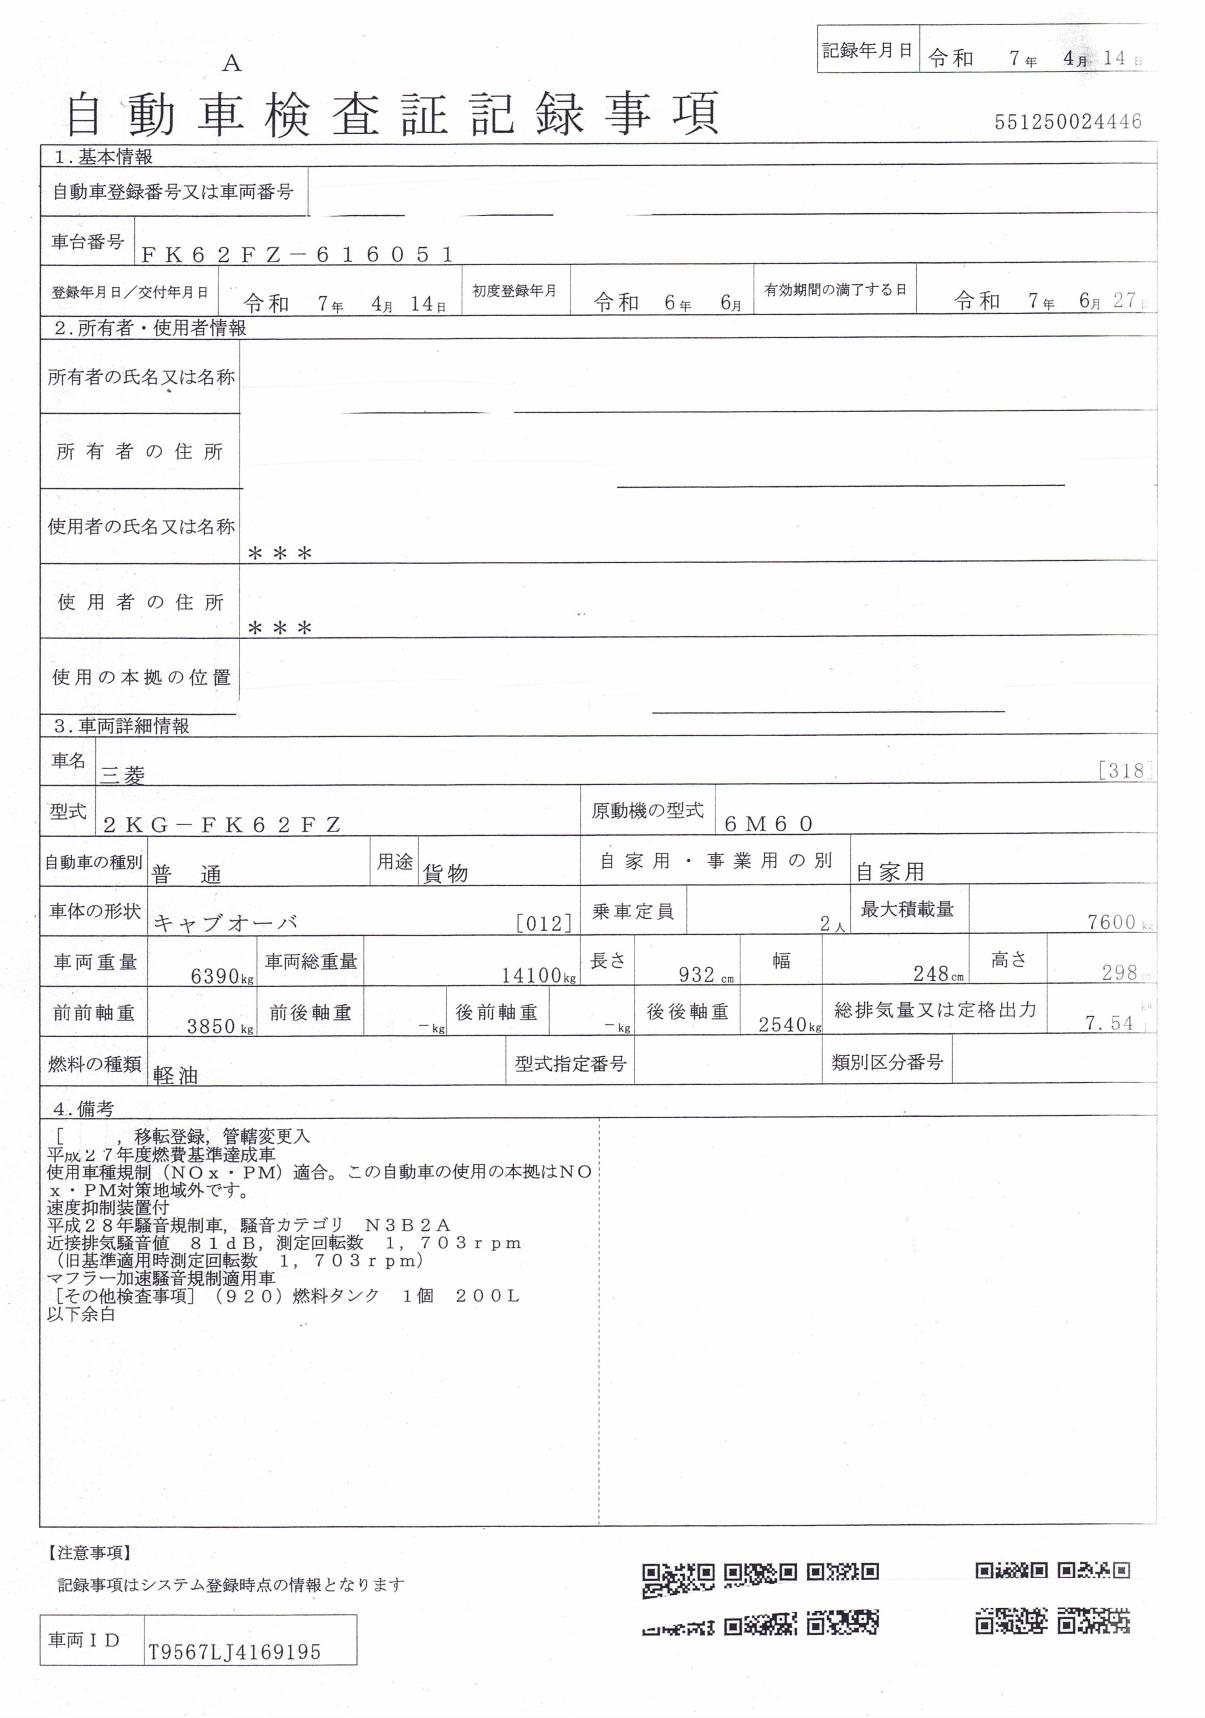 記録年月日 令和 7年 4月 14日
A
自動車検査証記録事項
551250024446
1.基本情報
自動車登録番号又は車両番号
車台番号 FK62FZ-616051
登録年月日/交付年月日 令和 7年 4月 14日 初度登録年月 令和 6年 6月 有効期間の満了する日 令和 7年 6月 27日
2.所有者・使用者情報
所有者の氏名又は名称
所有者の住所
使用者の氏名又は名称 ***
使用者の住所 ***
使用の本拠の位置
3.車両詳細情報
車名 三菱 [318]
型式 2KG-FK62FZ 原動機の型式 6M60
自動車の種別 普通 用途 貨物 自家用・事業用の別 自家用
車体の形状 キャブオーバ [012] 乗車定員 2人 最大積載量 7600kg
車両重量 6390kg 車両総重量 14100kg 長さ 932cm 幅 248cm 高さ 298cm
前前軸重 3850kg 前後軸重 -kg 後前軸重 -kg 後後軸重 2540kg 総排気量又は定格出力 7.54
燃料の種類 軽油 型式指定番号 類別区分番号
4.備考
[ ,移転登録,管轄変更入
平成27年度燃費基準達成車
使用車種規制(NOx・PM)適合。この自動車の使用の本拠はNO
x・PM対策地域外です。
速度抑制装置付
平成28年騒音規制車,騒音カテゴリ N3B2A
近接排気騒音値 81dB,測定回転数 1,703rpm
(旧基準適用時測定回転数 1,703rpm)
マフラー加速騒音規制適用車
[その他検査事項](920)燃料タンク 1個 200L
以下余白
【注意事項】
記録事項はシステム登録時点の情報となります
車両ID T9567LJ4169195